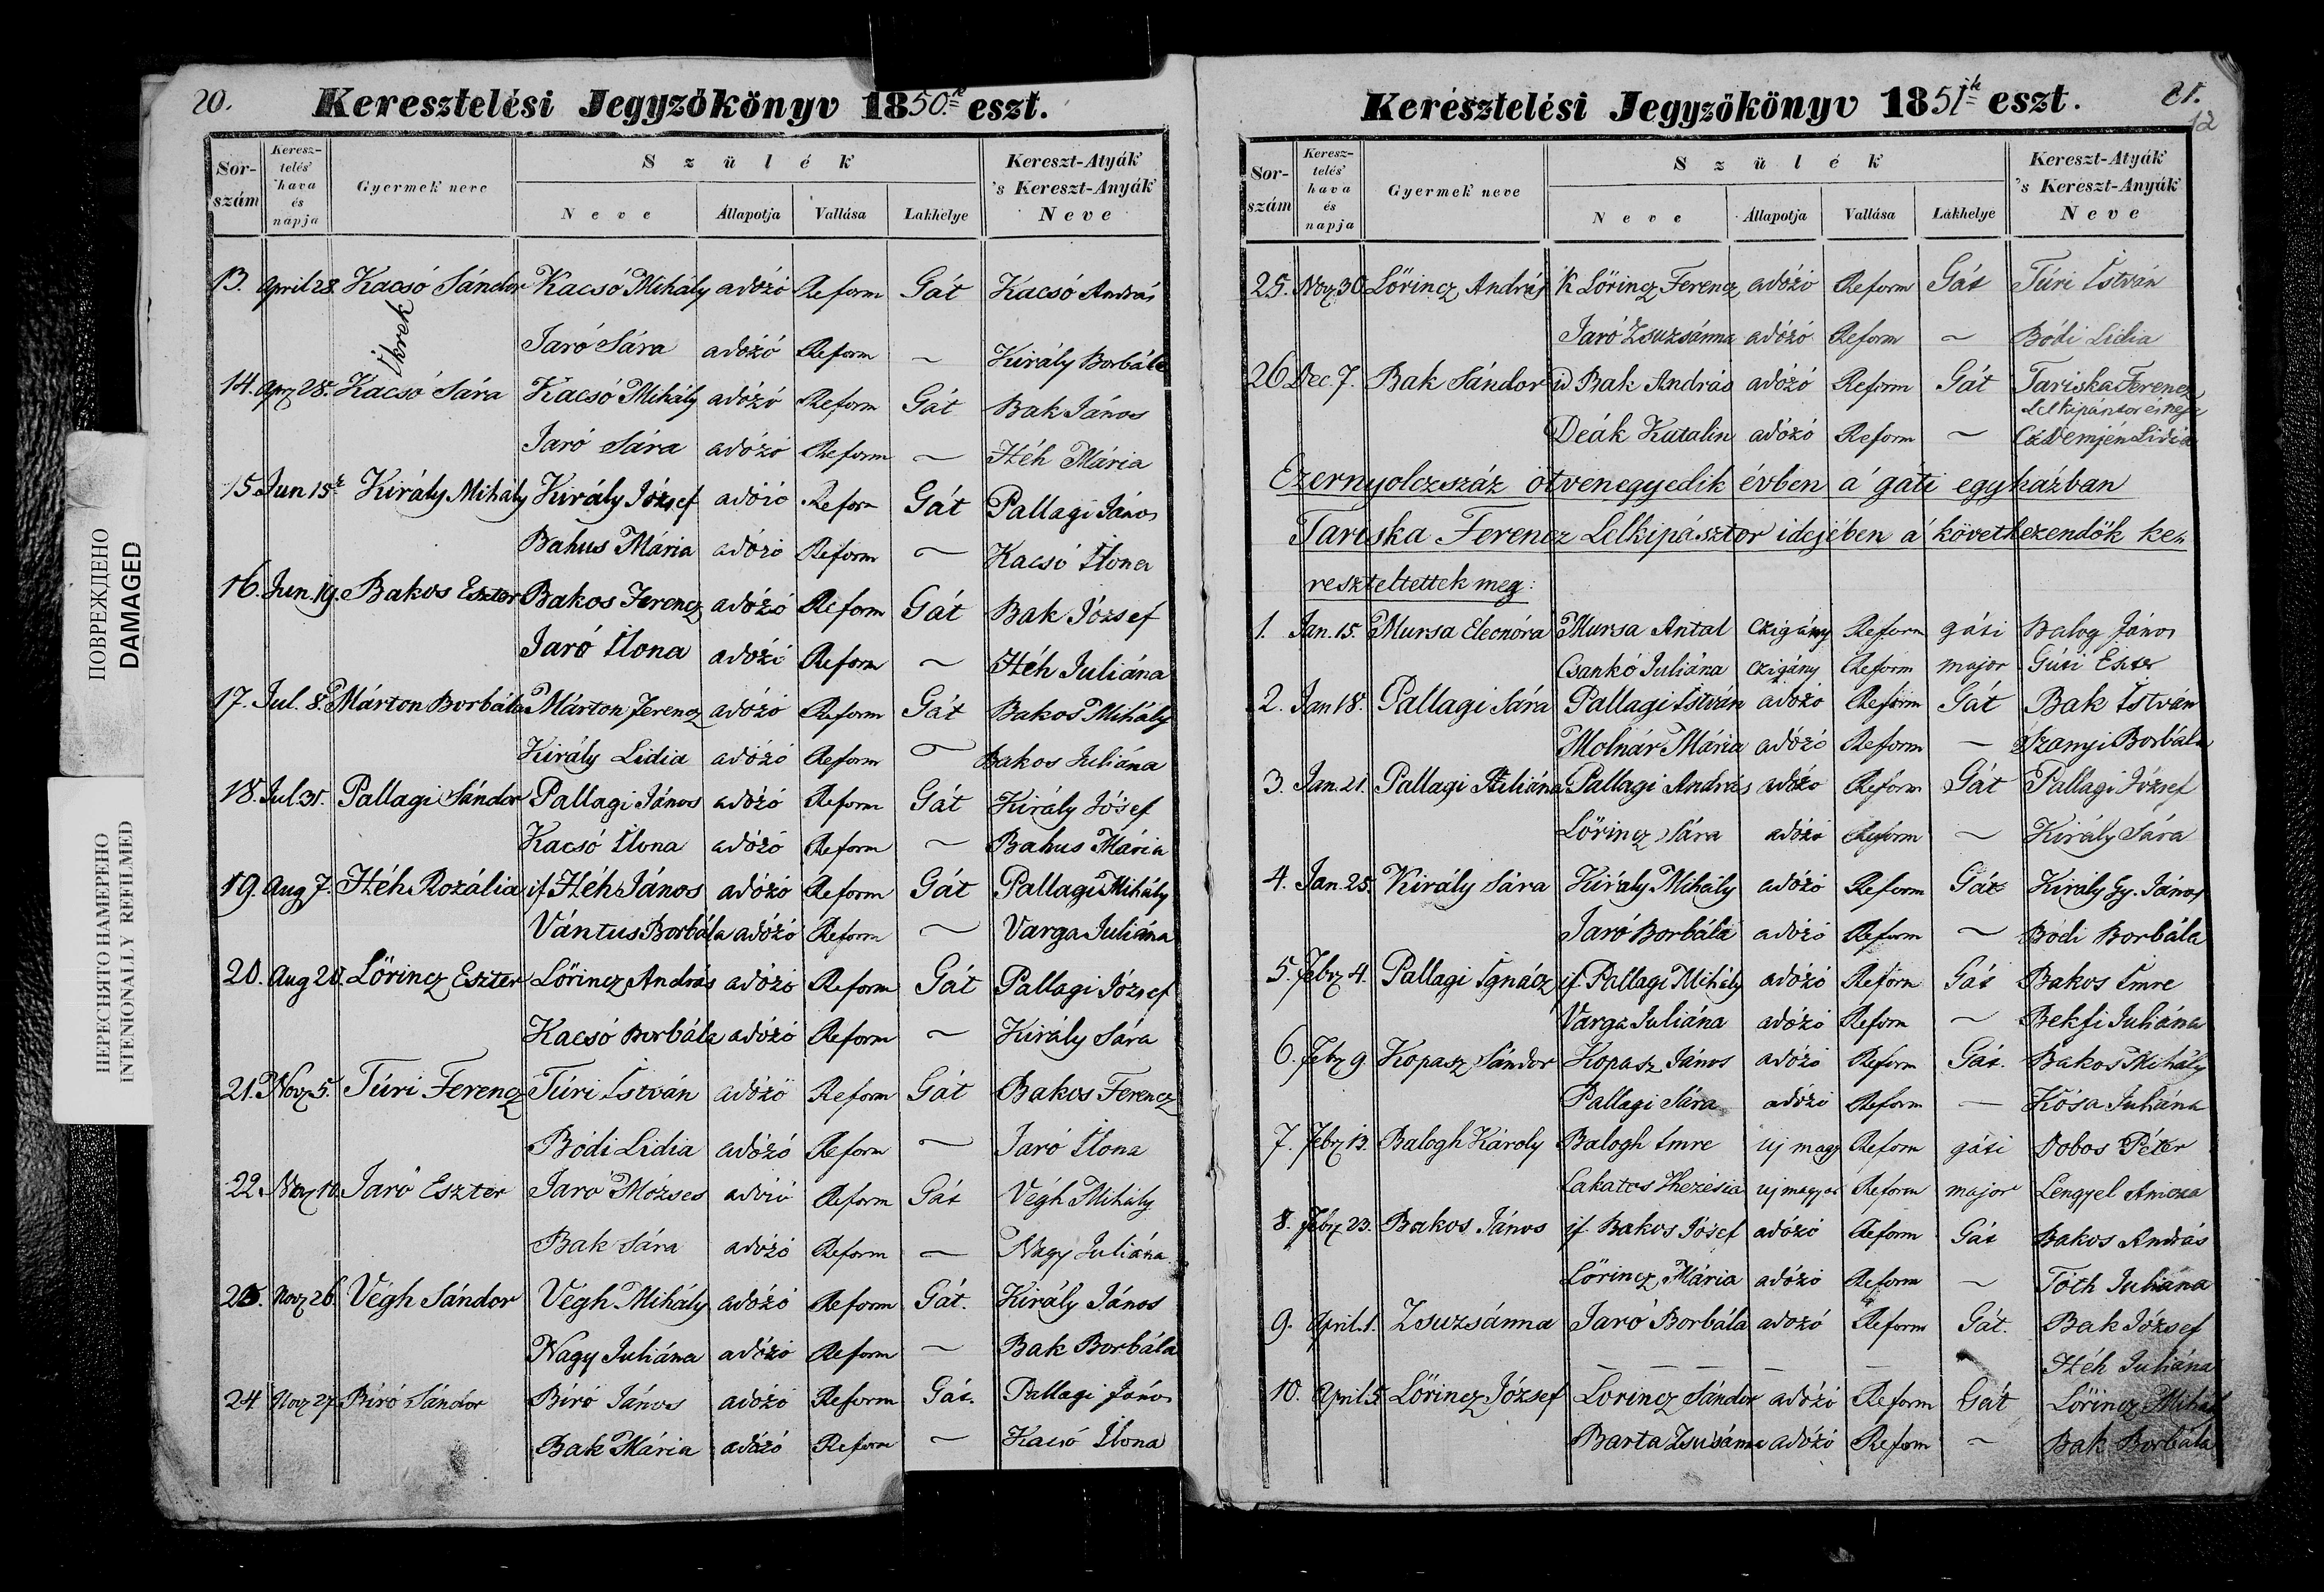 ПОВРЕЖДЕНО
DAMAGED
ПЕРЕСНЯТО НАМЕРЕНО
INTENIONALLY REFILMED
20.
Keresztelési Jegyzökönyv 1850.ik eszt.
Sor-szám Keresz-telés' hava és napja Gyermek neve Szülék Neve Állapotja Vallása Lakhelye Kereszt-Atyák 's Kereszt-Anyák Neve
13. April 28. Kacsó Sándor Kacsó Mihály adózó Reform Gát Kacsó András
Ikrek
Jaró Sára adózó Reform ~ Király Borbála
14. Apr 28. Kacsó Sára Kacsó Mihály adózó Reform Gát Bak János
Jaró Sára adózó Reform ~ Héh Mária
15. Jun 15 Király Mihály Király József adóió Reform Gát Pallagi János
Bahus Mária adózó Reform ~ Kacsó Ilona
16. Jun. 19. Bakos Eszter Bakos Ferencz adózó Reform Gát Bak József
Jaró Ilona adózó Reform ~ Héh Juliána
17. Jul. 8. Márton Borbála Márton Ferencz adózó Reform Gát Bakos Mihály
Király Lidia adózó Reform ~ Bakos Juliána
18. Jul. 31. Pallagi Sándor Pallagi János adózó Reform Gát Király Jósef
Kacsó Ilona adózó Reform ~ Bahus Mária
19. Aug 7. Héh Rozália if Héh János adózó Reform Gát Pallagi Mihály
Vántus Borbála adózó Reform ~ Varga Juliána
20. Aug 20. Lőrincz Eszter Lőrincz András adózó Reform Gát Pallagi József
Kacsó Borbála adózó Reform ~ Király Sára
21. Nov 5. Túri Ferencz Túri István adózó Reform Gát Bakos Ferencz
Bódi Lidia adózó Reform ~ Jaró Ilona
22. Nov 10. Jaró Eszter Jaró Mózses adózó Reform Gát Végh Mihály
Bak Sára adózó Reform ~ Nagy Juliána
Nov 26. Végh Sándor Végh Mihály adózó Reform Gát. Király János
Nagy Juliána adózó Reform ~ Bak Borbála
24. Nov 27. Bíró Sándor Bíró János adózó Reform Gát. Pallagi János
Bak Mária adózó Reform ~ Kacsó Ilona
Keresztelési Jegyzökönyv 1851ik eszt.
21.
12
Sor-szám Keresz-telés' hava és napja Gyermek neve Szülék Neve Állapotja Vallása Lakhelye Kereszt-Atyák 's Kereszt-Anyák Neve
25. Nov 30. Lőrincz András K Lőrincz Ferencz adózó Reform Gát Túri István
Jaró Zsuzsánna adózó Reform ~ Bódi Lidia
26. Dec. 7. Bak Sándor id Bak András adózó Reform Gát Tariska Ferencz
Deák Katalin adózó Reform ~ Demjén Lidia
Ezernyolczszáz ötvenegyedik évben á gáti egyházban
Tariska Ferencz Lelkipásztor idejében á következendők ke-
reszteltettek meg:
1. Jan. 15. Mursa Eleonóra Mursa Antal Czigány Reform gáti Balog János
Csankó Juliána Czigány Reform major Guti Eszter
2. Jan 18. Pallagi Sára Pallagi István adózó Reform Gát Bak István
Molnár Mária adózó Reform ~ Iványi Borbála
3. Jan. 21. Pallagi Juliána Pallagi András adózó Reform Gát Pallagi József
Lőrincz Sára adózó Reform ~ Király Sára
4. Jan. 25. Király Sára Király Mihály adózó Reform Gát Király Gy. János
Jaró Borbála adózó Reform ~ Bódi Borbála
5. Febr 4. Pallagi Ignácz if. Pallagi Mihály adózó Reform Gát Bakos Imre
Varga Juliána adózó Reform ~ Bekfi Juliána
6. Febr 9. Kopasz Sándor Kopasz János adózó Reform Gát. Bakos Mihály
Pallagi Sára adózó Reform ~ Kósa Juliána
7. Febr 13. Balogh Károly Balogh Imre uj magy Reform gáti Dobos Péter
Lakatos Therésia uj magyar Reform major Lengyel
8. Febr 23. Bakos János if. Bakos Jósef adózó Reform Gát Bakos András
Lőrincz Mária adózó Reform ~ Tóth Juliána
9. April. 1. Zsuzsánna Jaró Borbála adózó Reform Gát. Bak József
– – – – – Héh Juliána
10. April. 5. Lőrincz József Lőrincz Sándor adózó Reform Gát Lőrincz Mihály
Barta Zsuzsánna adózó Reform ~ Bak Borbála